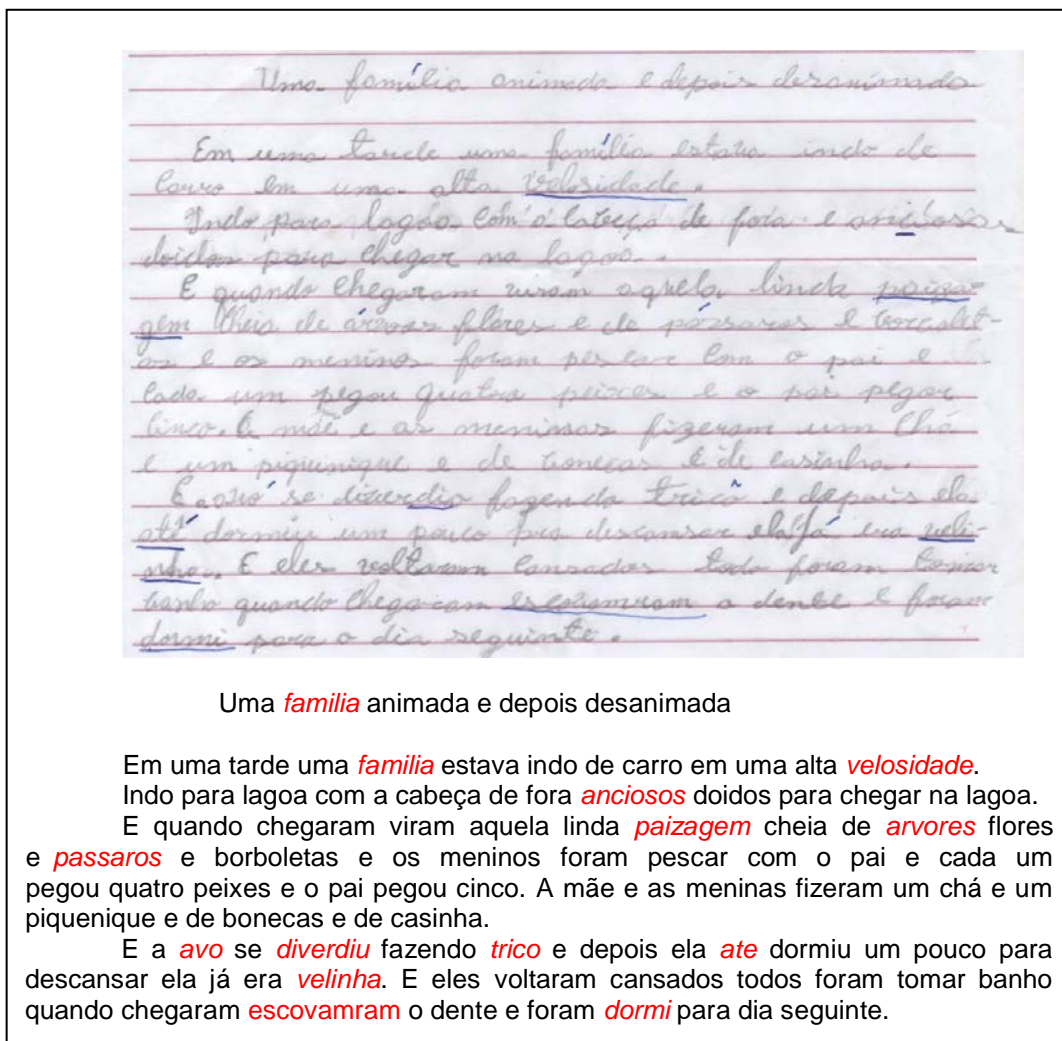 Uma família animada e depois desanimada
Em uma tarde uma família estava indo de
carro em uma alta velosidade.
Indo para lagoa com a cabeça de fora e anciosos
doidos para chegar na lagoa.
E quando chegaram viram aquela linda paiza-
gem cheia de árvores flores e de pássaros e borbolet-
as e os meninos foram pescar com o pai e
cada um pegou quatro peixes e o pai pegou
cinco. A mãe e as meninas fizeram um chá
e um piquinique e de bonecas e de casinha.
E a avó se diverdiu fazendo tricô e depois ela
até dormiu um pouco pra descansar ela já era veli-
nha. E eles voltaram cansados todo foram tomar
banho quando chegaram escovamram o dente e foram
dormi para o dia seguinte.
Uma familia animada e depois desanimada
Em uma tarde uma familia estava indo de carro em uma alta velosidade.
Indo para lagoa com a cabeça de fora anciosos doidos para chegar na lagoa.
E quando chegaram viram aquela linda paizagem cheia de arvores flores
e passaros e borboletas e os meninos foram pescar com o pai e cada um
pegou quatro peixes e o pai pegou cinco. A mãe e as meninas fizeram um chá e um
piquenique e de bonecas e de casinha.
E a avo se diverdiu fazendo trico e depois ela ate dormiu um pouco para
descansar ela já era velinha. E eles voltaram cansados todos foram tomar banho
quando chegaram escovamram o dente e foram dormi para dia seguinte.